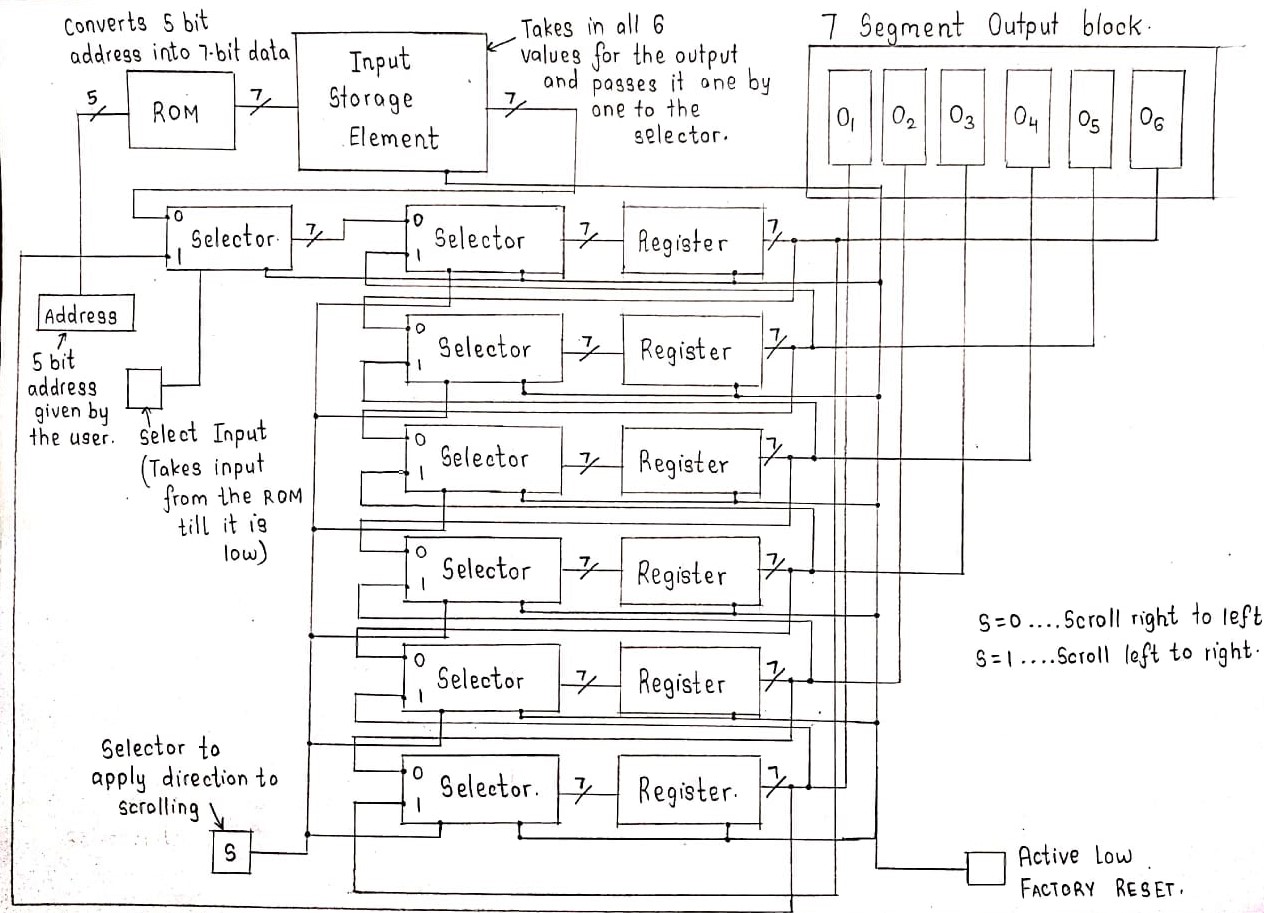 Converts 5 bit
address into 7-bit data
5
ROM
7
Input
Storage
Element
7
Takes in all 6
values for the output
and passes it one by
one to the
selector.
7 Segment Output block.
O1
O2
O3
O4
O5
O6
0
1
Selector.
7
0
1
Selector
7
Register
7
Address
5 bit
address
given by
the user.
Select Input
(Takes input
from the ROM
till it is
low)
0
1
Selector
7
Register
7
0
1
Selector
7
Register
7
0
1
Selector
7
Register
7
S=0 ....Scroll right to left
S=1 ....Scroll left to right.
0
1
Selector
7
Register
7
Selector to
apply direction to
scrolling
S
0
1
Selector.
7
Register.
7
Active Low
FACTORY RESET.